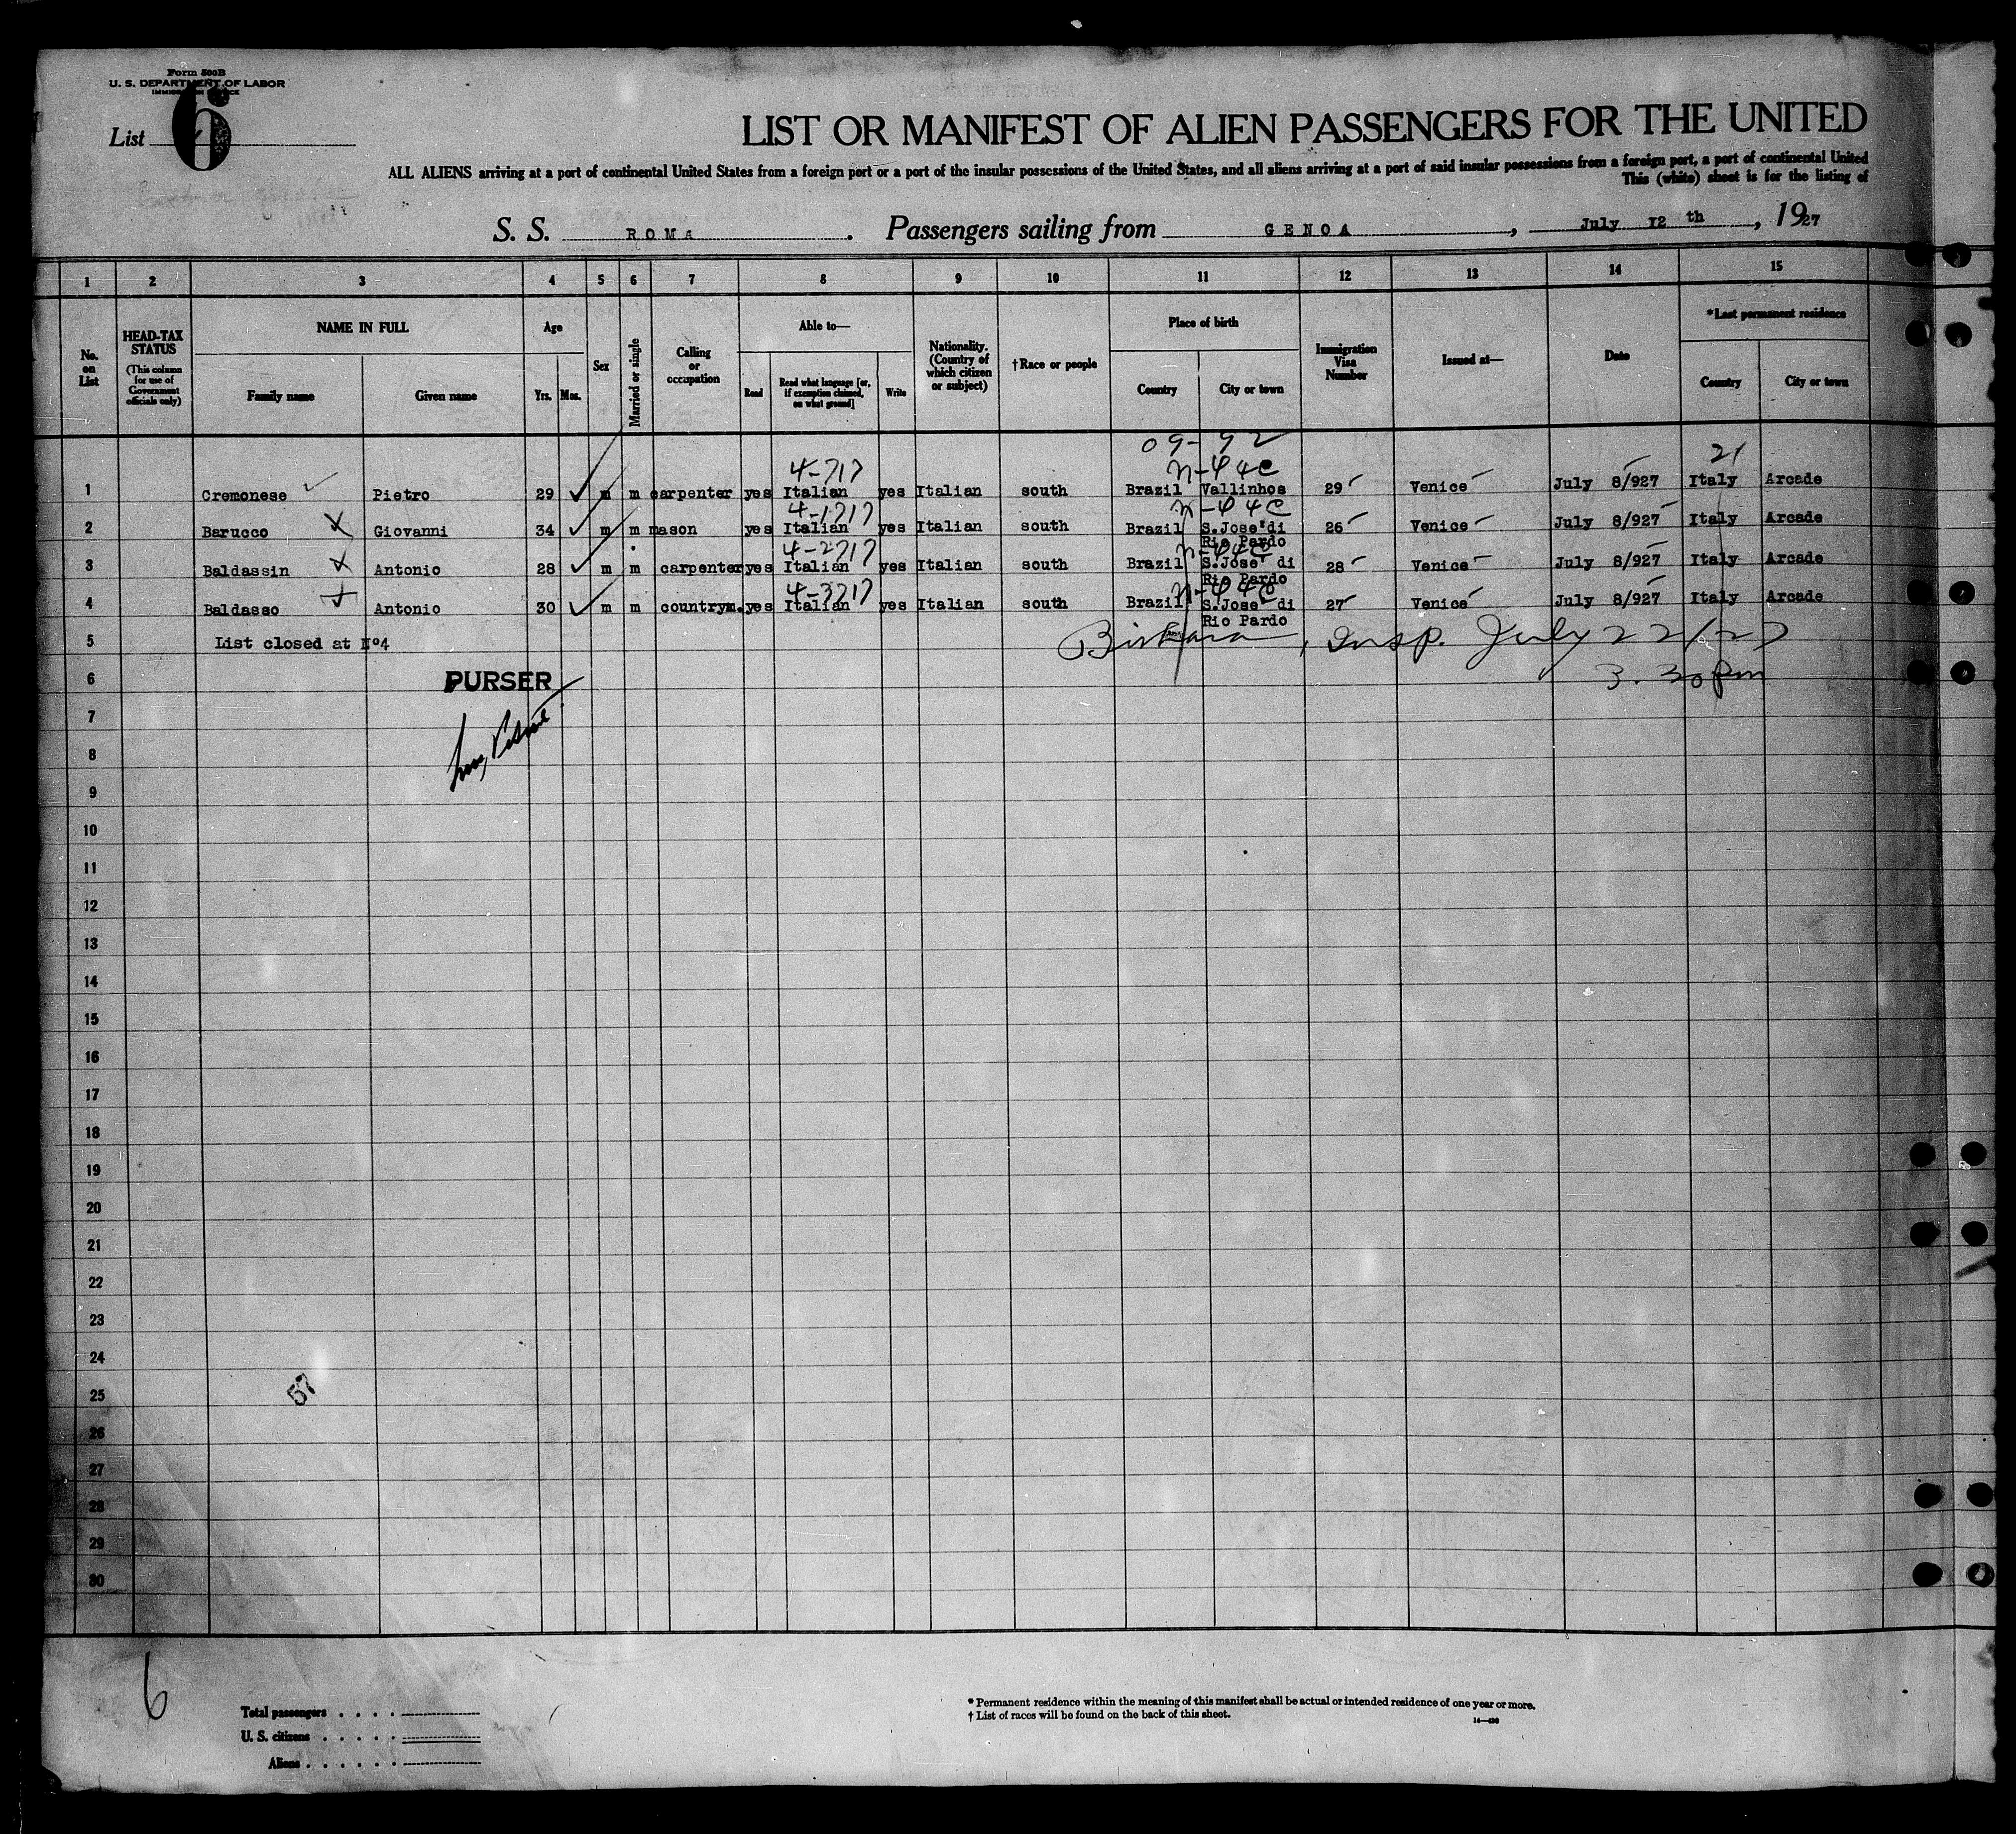 Form 500B
U. S. DEPARTMENT OF LABOR
List 6
LIST OR MANIFEST OF ALIEN PASSENGERS FOR THE UNITED
ALL ALIENS arriving at a port of continental United States from a foreign port or a port of the insular possessions of the United States, and all aliens arriving at a port of said insular possessions from a foreign port, a port of continental United
This (white) sheet is for the listing of
S. S. ROMA. Passengers sailing from GENOA, July 12 th, 1927
1 2 3 4 5 6 7 8 9 10 11 12 13 14 15
No. on List
HEAD-TAX STATUS (This column for use of Government officials only)
NAME IN FULL
Family name Given name
Age
Yrs. Mos.
Sex
Married or single
Calling or occupation
Able to—
Read Read what language [or, if exemption claimed, on what ground] Write
Nationality. (Country of which citizen or subject)
†Race or people
Place of birth
Country City or town
Immigration Visa Number
Issued at—
Date
*Last permanent residence
Country City or town
09-92
4-717 n-44c 21
1 Cremonese Pietro 29 m m carpenter yes Italian yes Italian south Brazil Vallinhos 29 Venice July 8/927 Italy Arcade
4-1717 n-44c
2 Barucco Giovanni 34 m m mason yes Italian yes Italian south Brazil S.Jose' di Rio Pardo 26 Venice July 8/927 Italy Arcade
4-2717 n-44c
3 Baldassin Antonio 28 m m carpenter yes Italian yes Italian south Brazil S.Jose' di Rio Pardo 28 Venice July 8/927 Italy Arcade
4-3717 n-44c
4 Baldasso Antonio 30 m m countrym. yes Italian yes Italian south Brazil S.Jose' di Rio Pardo 27 Venice July 8/927 Italy Arcade
5 List closed at Nº4 Insp. July 22/27
6 PURSER 3.30 pm
7
8
9
10
11
12
13
14
15
16
17
18
19
20
21
22
23
24
25 57
26
27
28
29
30
6
Total passengers
U. S. citizens
Aliens
* Permanent residence within the meaning of this manifest shall be actual or intended residence of one year or more.
† List of races will be found on the back of this sheet.